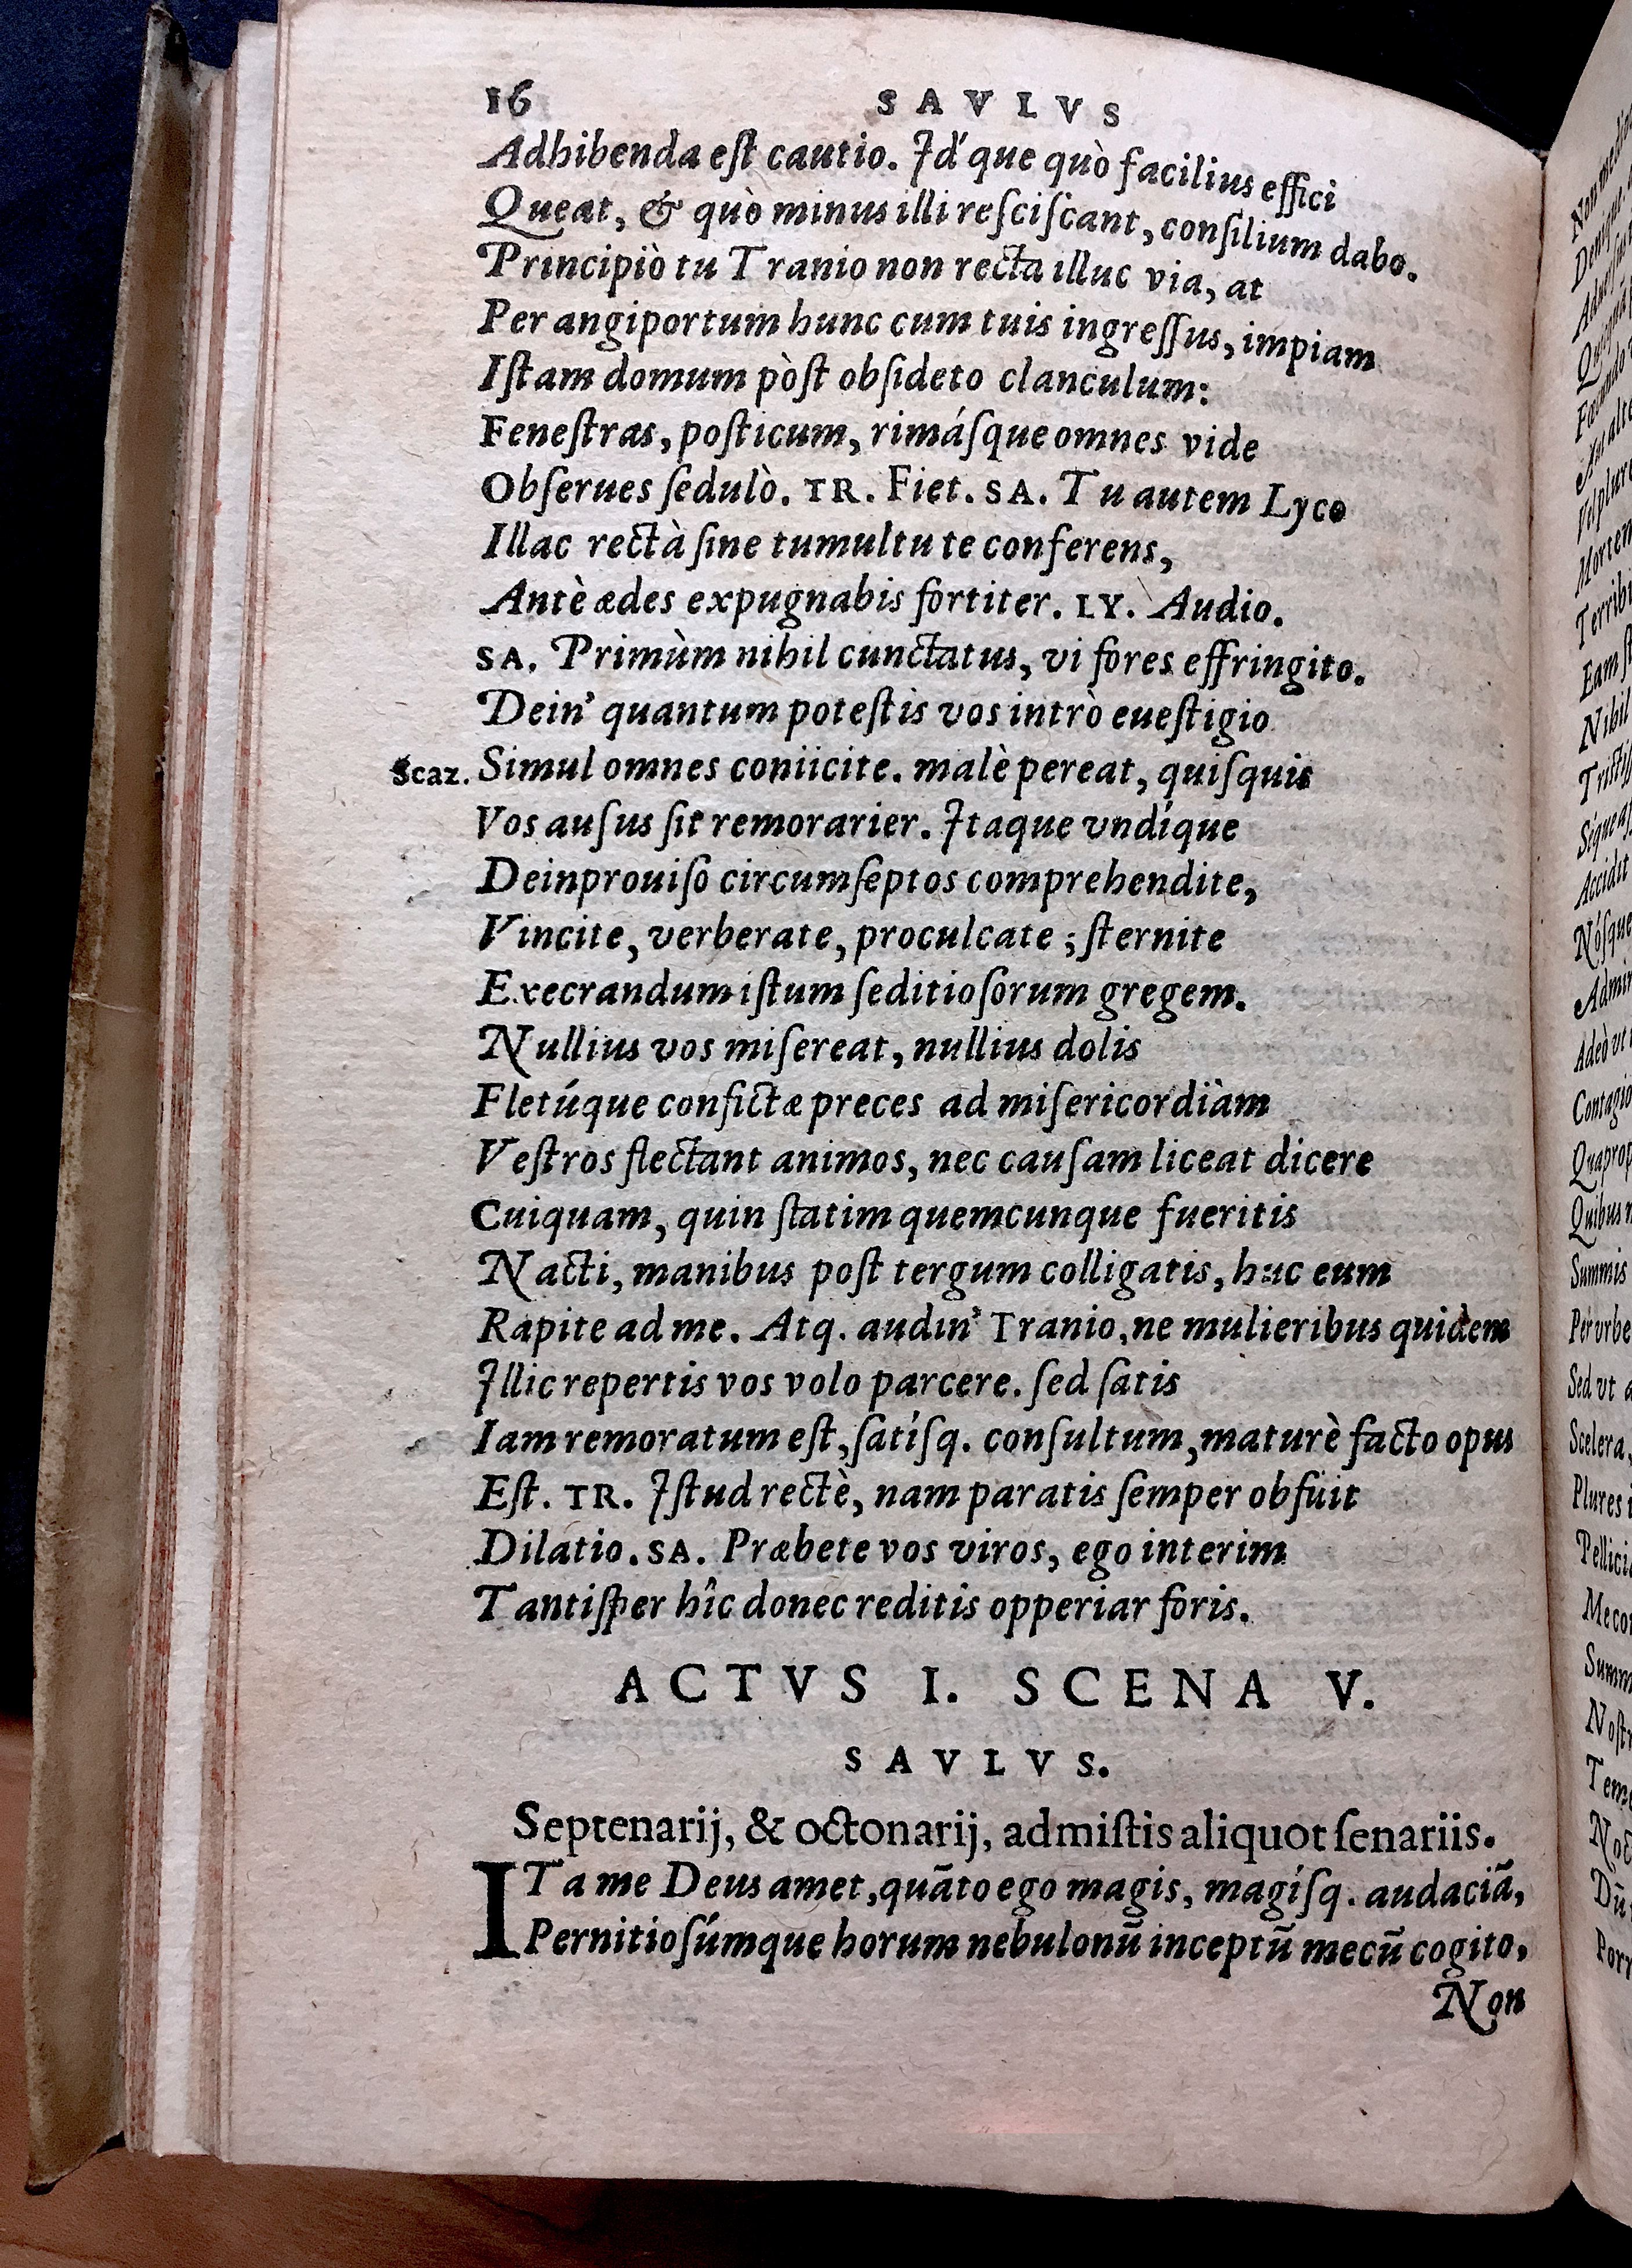 16 SAVLVS
Adhibenda eſt cautio. Id'que quò facilius effici
Queat, & quò minus illi reſciſcant, conſilium dabo.
Principiò tu Tranio non recta illuc via, at
Per angiportum hunc cum tuis ingreſſus, impiam
Iſtam domum pòſt obſideto clanculum:
Feneſtras, poſticum, rimáſque omnes vide
Obſerues ſedulò. TR. Fiet. SA. Tu autem Lyco
Illac rectà ſine tumultu te conferens,
Antè ædes expugnabis fortiter. LY. Audio.
SA. Primùm nihil cunctatus, vi fores effringito.
Dein' quantum poteſtis vos intrò eueſtigio
Scaz. Simul omnes coniicite. malè pereat, quiſquis
Vos auſus ſit remorarier. Itaque vndíque
Deinprouiſo circumſeptos comprehendite,
Vincite, verberate, proculcate ; ſternite
Execrandum iſtum ſeditioſorum gregem.
Nullius vos miſereat, nullius dolis
Fletúque confictæ preces ad miſericordiàm
Veſtros flectant animos, nec cauſam liceat dicere
Cuiquam, quin ſtatim quemcunque fueritis
Nacti, manibus poſt tergum colligatis, huc eum
Rapite ad me. Atq. audin' Tranio, ne mulieribus quidem
Illic repertis vos volo parcere. ſed ſatis
Iam remoratum eſt, ſatíſq. conſultum, maturè facto opus
Eſt. TR. Iſtud rectè, nam paratis ſemper obfuit
Dilatio. SA. Præbete vos viros, ego interim
Tantiſper hîc donec reditis opperiar foris.
ACTVS I. SCENA V.
SAVLVS.
Septenarij, & octonarij, admiſtis aliquot ſenariis.
ITa me Deus amet, quãto ego magis, magíſq. audaciã,
Pernitioſúmque horum nebulonũ inceptũ mecũ cogito,
Non